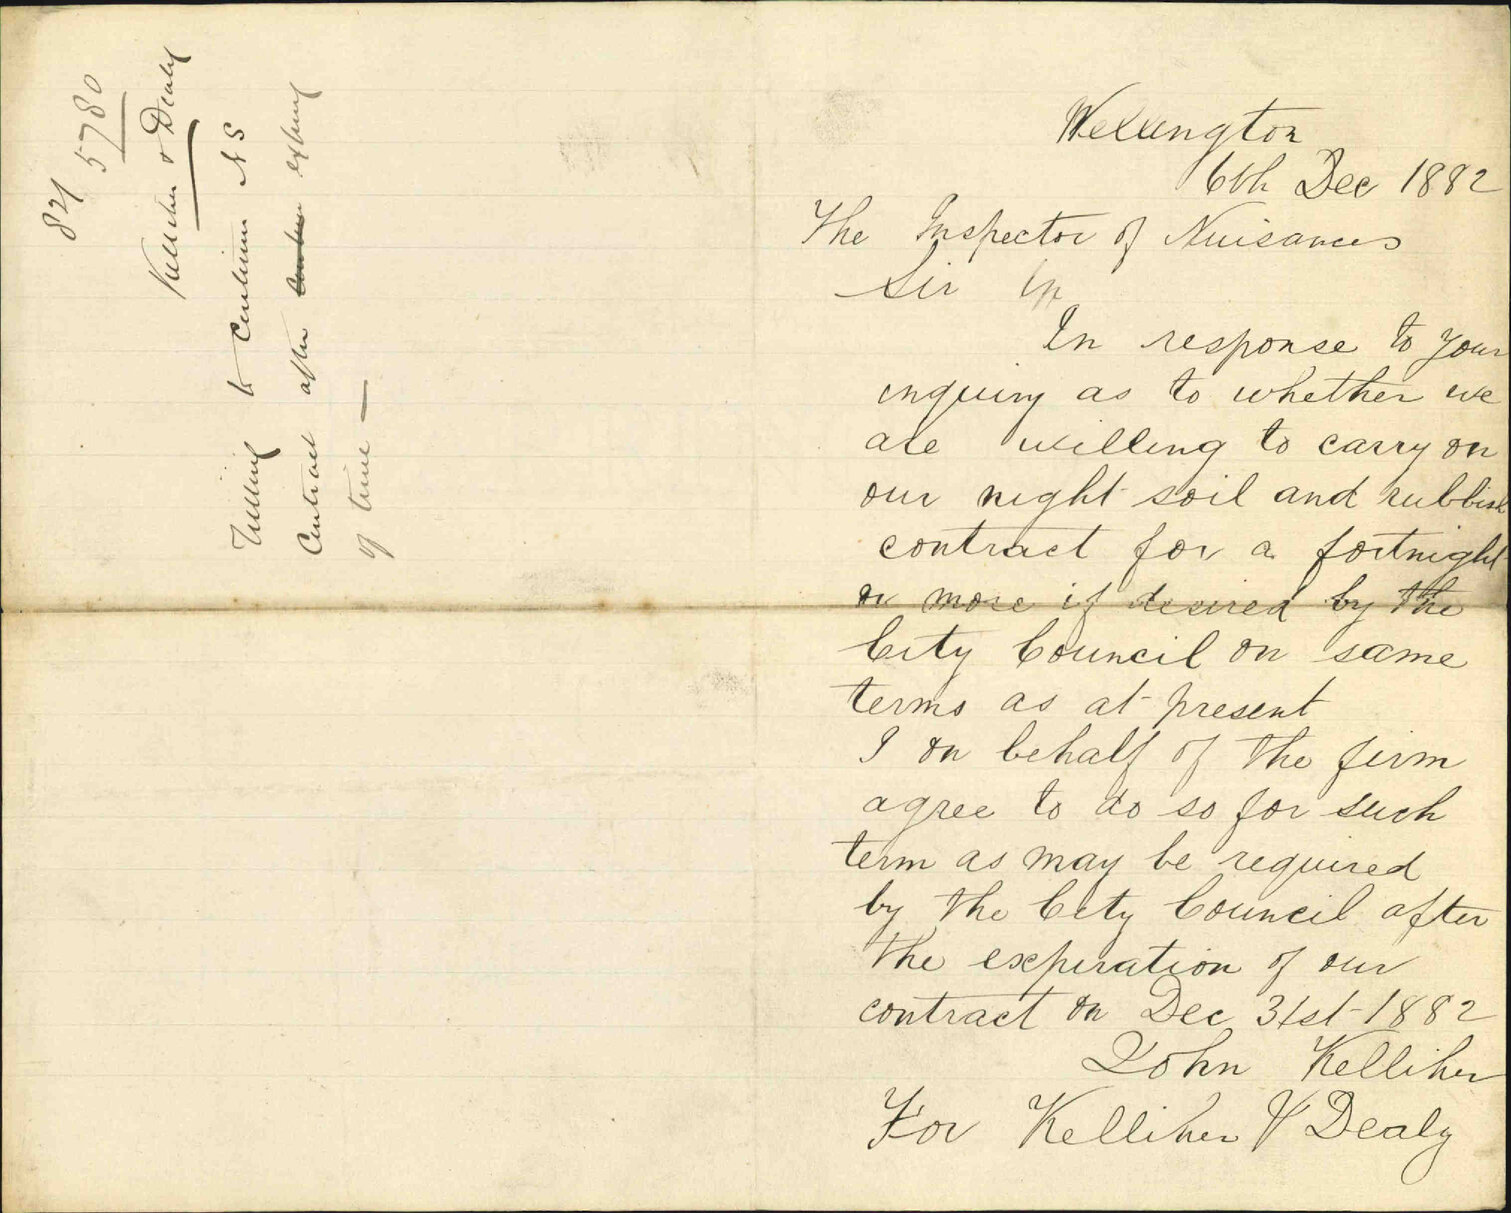 84
5780
Kelliher & Dealy
Willing to Continue N S
Contract after expiry
of time —
Wellington
6th Dec 1882
The Inspector of Nuisances
Sir
In response to your
inquiry as to whether we
are willing to carry on
our night soil and rubbish
contract for a fortnight
or more if desired by the
City Council on same
terms as at present
I on behalf of the firm
agree to do so for such
term as may be required
by the City Council after
the expiration of our
contract on Dec 31st 1882
John Kelliher
For Kelliher & Dealy